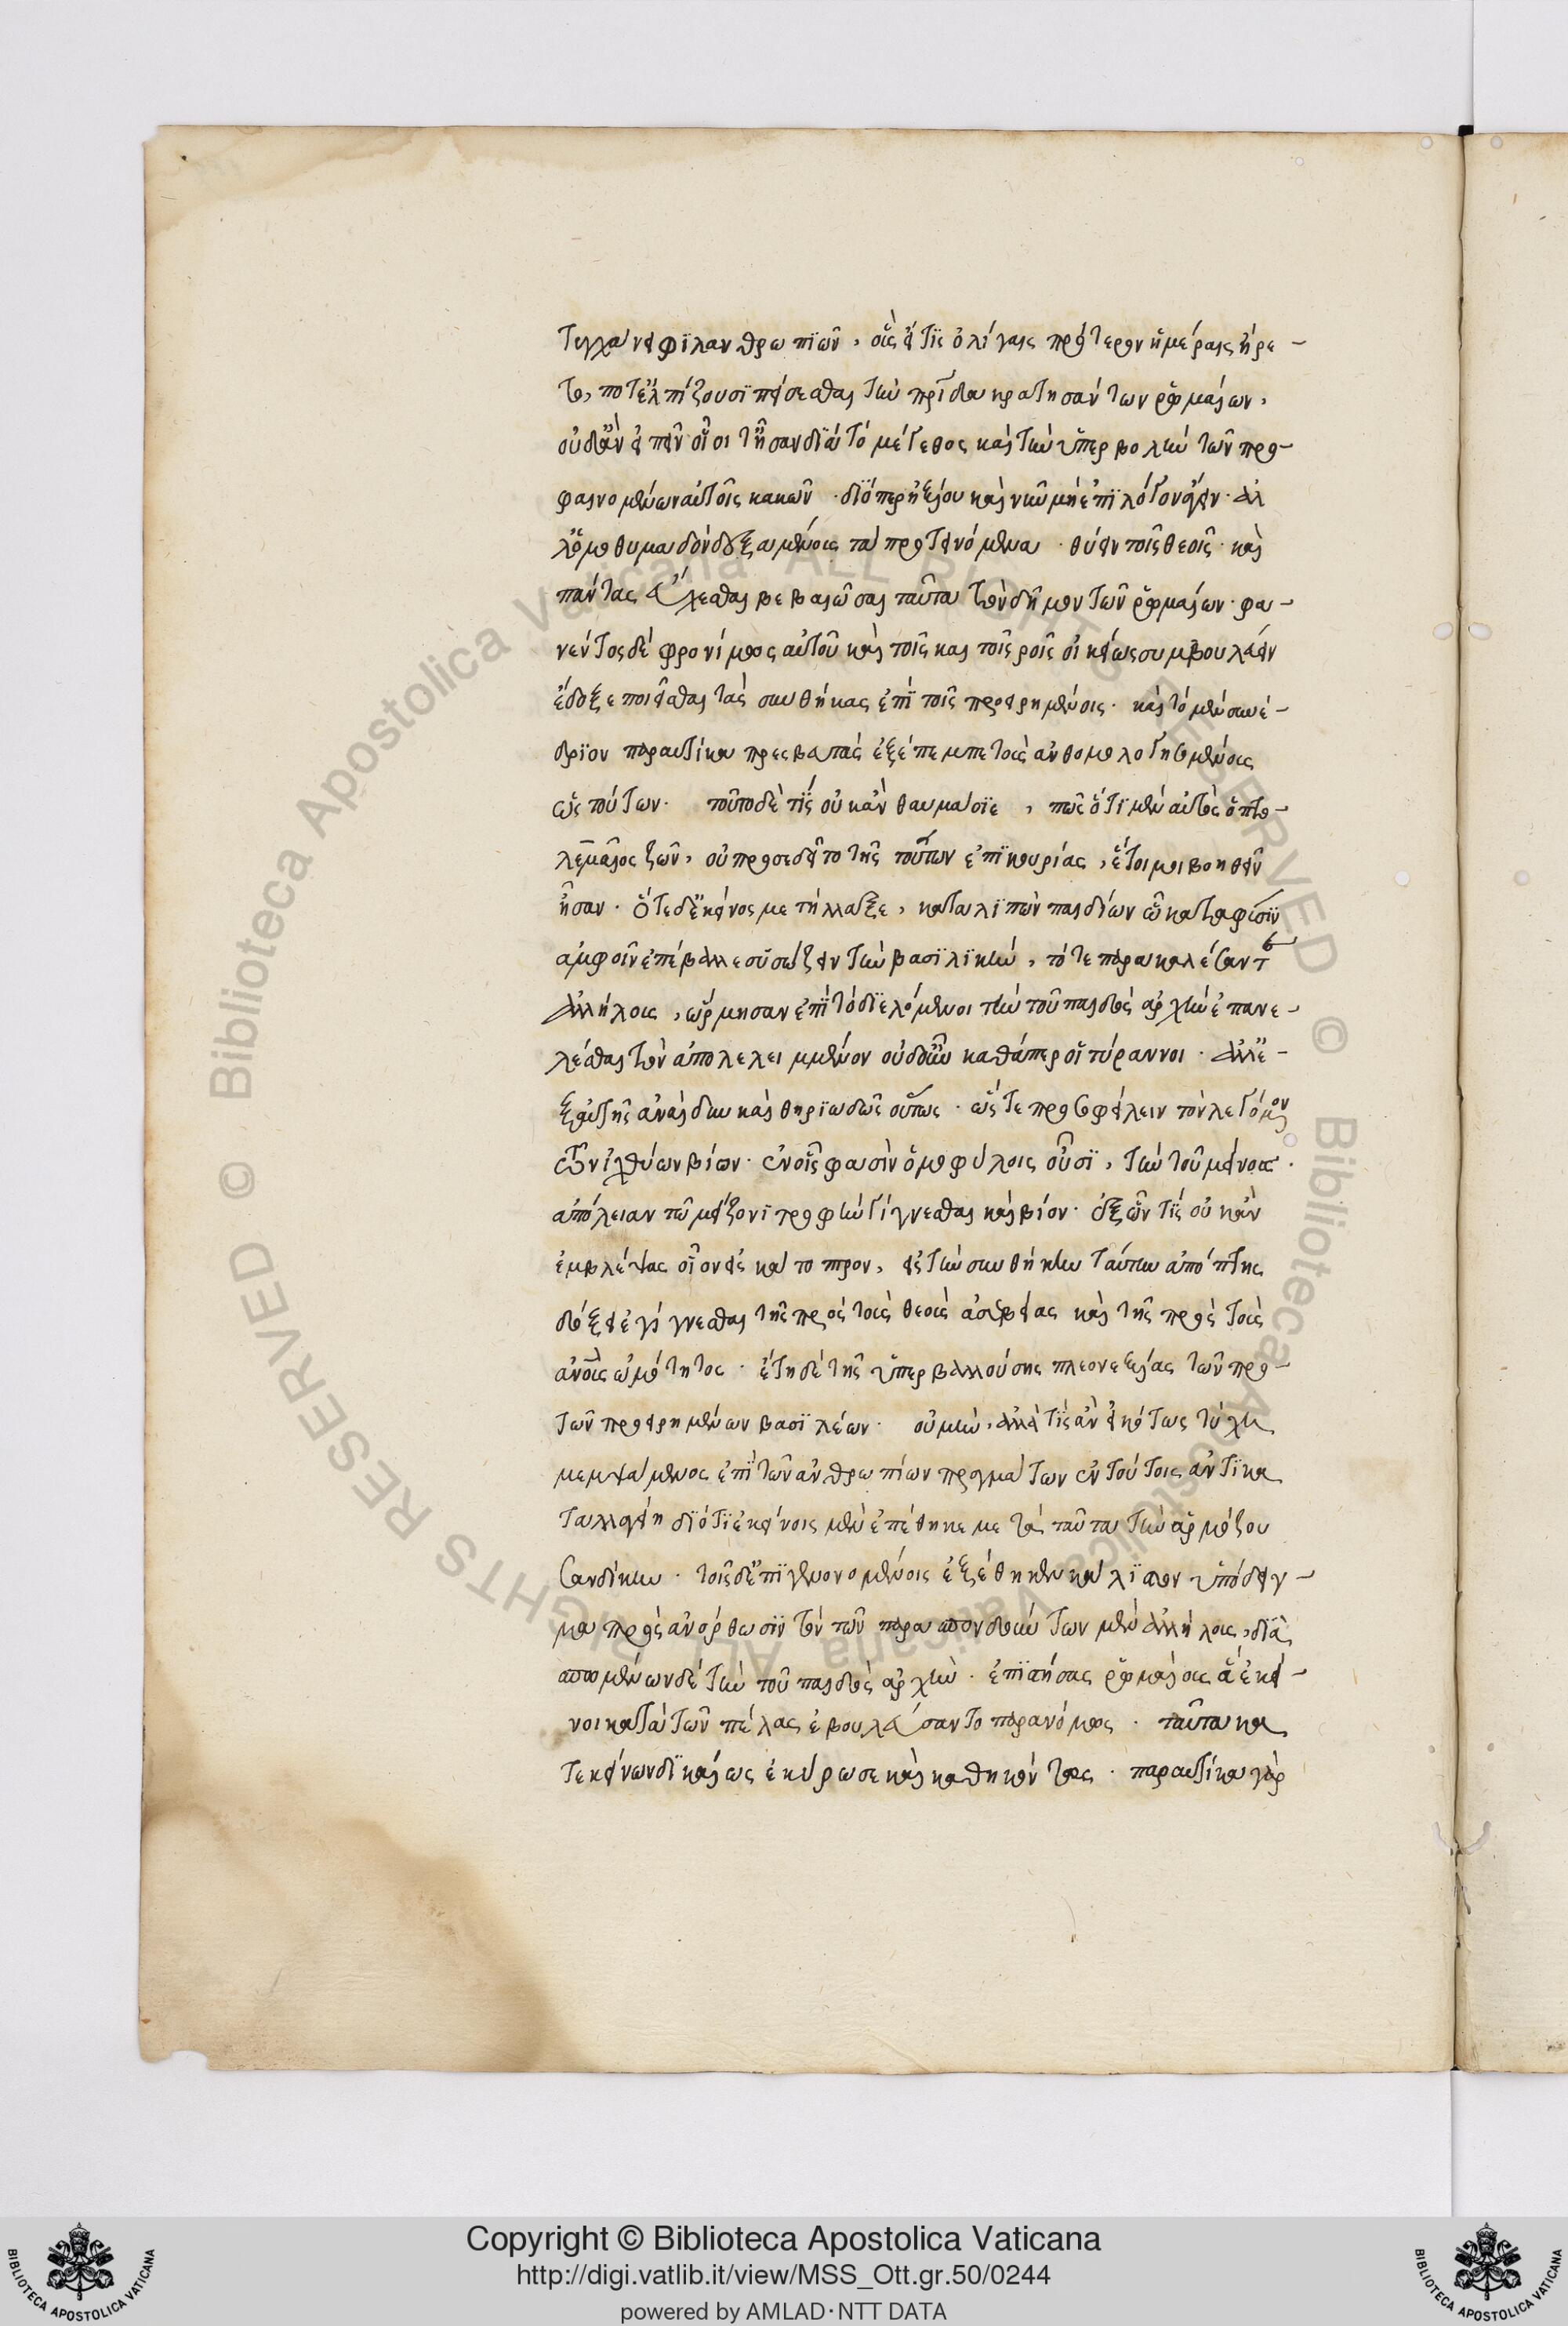 τυγχάνει φιλανθρωπιῶν, οὓς εἴ τις ὀλίγαις πρότερον ἡμέραις ἤρε-
το, ποτ' ἐλπίζουσι πείσεσθαι τὴν πατρίδα κρατησάντων ῥωμαίων,
οὐδ' ἂν εἰπεῖν οἷοί τ' ἦσαν διὰ τὸ μέγεθος καὶ τὴν ὑπερβολὴν τῶν προ-
φαινομένων αὐτοῖς κακῶν. διόπερ ἠξίου καὶ νῦν μὴ ἐπὶ λόγον ἄγειν. ἀλ
λ' ὁμοθυμαδὸν δεξαμένους τὰ προτεινόμενα. θύειν τοῖς θεοῖς. καὶ
πάντας εὔχεσθαι βεβαιῶσαι ταῦτα τὸν δῆμον τῶν ῥωμαίων. φα-
νέντος δὲ φρονίμως αὐτοῦ καὶ τοῖς καιροῖς οἰκείως συμβουλεύειν
ἔδοξε ποιεῖσθαι τὰς συνθήκας ἐπὶ τοῖς προειρημένοις. καὶ τὸ μὲν συνέ-
δριον παραυτίκα πρεσβευτὰς ἐξέπεμπε τοὺς ἀνθομολογησομένους
ὑπὲρ τούτων. τοῦτο δὲ τίς οὐκ ἂν θαυμάσειε, πῶς ὅτι μὲν αὐτὸς ὁ πτο-
λεμαῖος ζῶν, οὐ προσεδεῖτο τῆς τούτων ἐπικουρίας, ἕτοιμοι βοηθεῖν
ἦσαν. ὅτε δ' ἐκεῖνος μετήλλαξε, καταλιπὼν παιδίον ᾧ κατὰ φύσιν
ἀμφοῖν ἐπέβαλλε συσσώζειν τὴν βασιλείαν, τότε παρακαλέσαντες
ἀλλήλους, ὥρμησαν ἐπὶ τὸ διελόμενοι τὴν τοῦ παιδὸς ἀρχὴν ἐπανε-
λέσθαι τὸν ἀπολελειμμένον οὐδ' οὖν καθάπερ οἱ τύραννοι. ἀλλ' ἐ-
ξ αὐτῆς ἀναίδην καὶ θηριωδῶς οὕτως. ὥστε προσοφείλειν τὸν λεγόμενον
τῶν ἰχθύων βίον. ἐν οἷς φασὶν ὁμοφύλοις οὖσι, τὴν τοῦ μείονος.
ἀπώλειαν τῷ μείζονι τροφὴν γίγνεσθαι καὶ βίον. ἐξ ὧν τίς οὐκ ἂν
ἐμβλέψας οἷον εἰς κάτοπτρον, εἰς τὴν συνθήκην ταύτην αὐτόπτης
δόξειε γίγνεσθαι τῆς πρὸς τοὺς θεοὺς ἀσεβείας καὶ τῆς πρὸς τοὺς
ἀνους ὠμότητος. ἔτι δὲ τῆς ὑπερβαλλούσης πλεονεξίας τῶν προ-
τῶν προειρημένων βασιλέων. οὐ μὴν, ἀλλὰ τίς ἂν εἰκότως τύχῃ
μεμψάμενος ἐπὶ τῶν ἀνθρωπίων πραγμάτων ἐν τούτοις ἀντικα
ταλλαγείη διότι ἐκείνοις μὲν ἐπέθηκε μετὰ ταῦτα τὴν ἁρμόζου
σαν δίκην. τοῖς δ' ἐπιγενομένοις ἐξέθηκεν κάλλιστον ὑπόδειγ-
μα πρὸς ἀνόρθωσιν τὸν τῶν παρασπονδούντων μὲν ἀλλήλους, δια
σπωμένων δὲ τὴν τοῦ παιδὸς ἀρχὴν. ἐπιστήσας ῥωμαίους ἃ ἐκεῖ-
νοι κατὰ τῶν πέλας ἐβουλεύσαντο παρανόμως. ταῦτα κα
τ' ἐκείνων δικαίως ἐκύρωσε καὶ καθηκόντως. παραυτίκα γὰρ
Copyright © Biblioteca Apostolica Vaticana
http://digi.vatlib.it/view/MSS_Ott.gr.50/0244
powered by AMLAD·NTT DATA